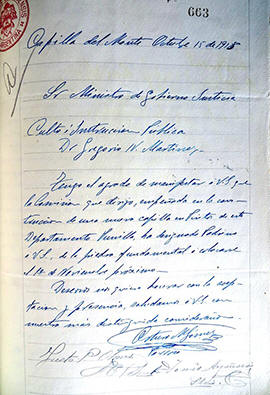 663
Capilla del Monte Octubre 15 de 1915
Sr Ministro de Gobierno Justicia
Culto i Instruccion Publica
Dr Gregorio N. Martinez
Tengo el agrado de manifestar á V.S. que
la Comision que dirijo, empeñada en la cons-
truccion de una nueva capilla en de este
Departamento Punilla, ha designado Padrino
á V.S. de la piedra fundamental i colocarse
el de Noviembre próximo.
nos quiera honrar con la acep-
tacion y presencia, saludamos á V.S. con
nuestra mas distinguida consideracion.
Arturo Gomez